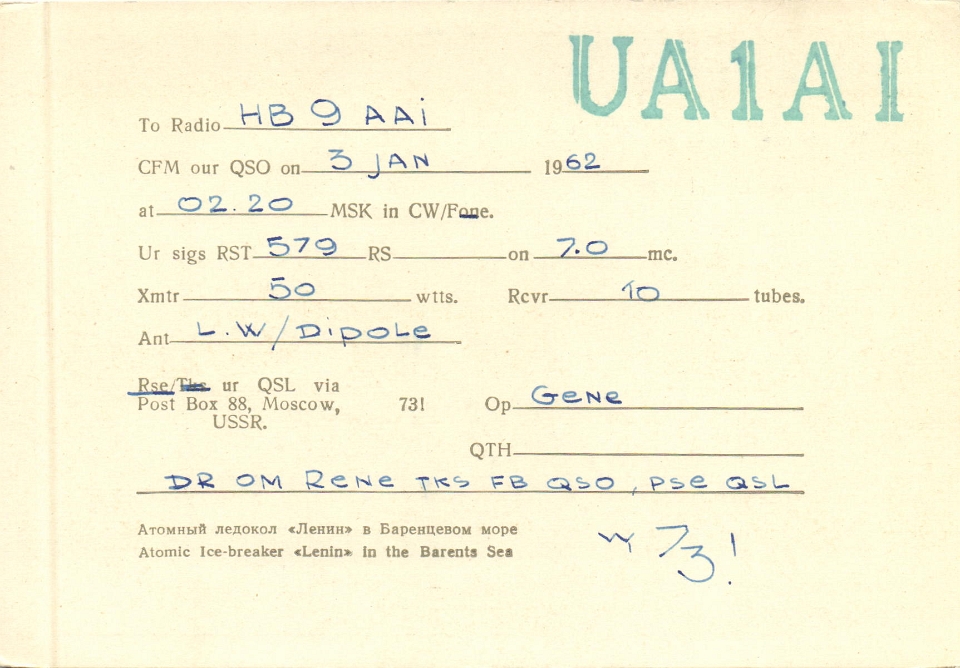 UA1AI
To Radio HB 9 AAi
CFM our QSO on 3 JAN 1962
at 02.20 MSK in CW/Fone.
Ur sigs RST 579 RS on 7.0 mc.
Xmtr 50 wtts. Rcvr 10 tubes.
Ant L.W/Dipole
Rse/Tks ur QSL via
Post Box 88, Moscow, 73! Op Gene
USSR.
QTH
DR OM Rene TKS FB QSO, PSe QSL
Атомный ледокол «Ленин» в Баренцевом море
Atomic Ice-breaker «Lenin» in the Barents Sea
W 73!